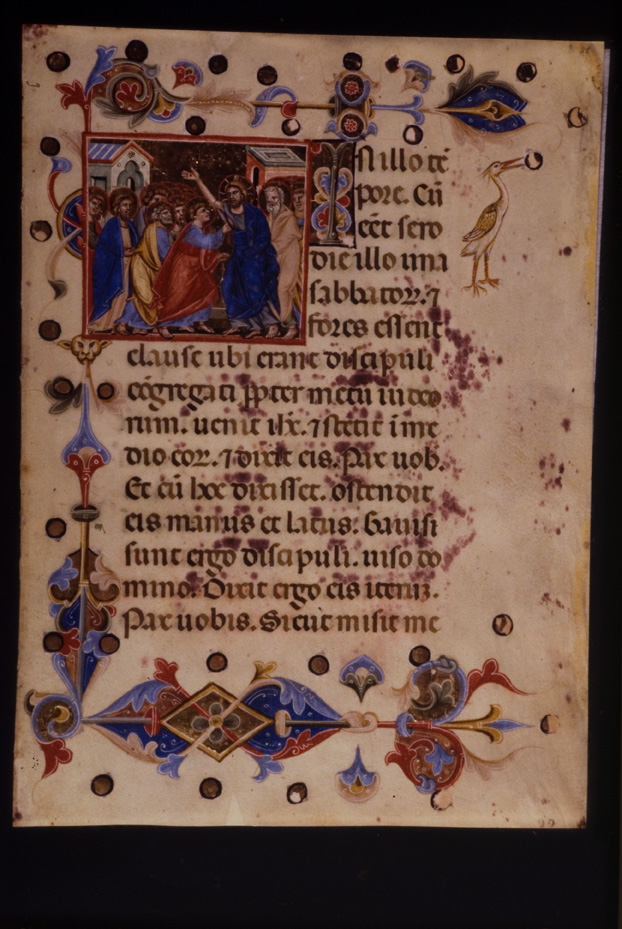 In illo tē
pore. Cū
eēt sero
die illo una
sabbatoꝝ. ⁊
fores essent
clause ubi erant discipuli
cōgregati ꝓpter metū iudeo
rum. uenit ihꝰ. ⁊ stetit ī me
dio eoꝝ. ⁊ dixit eis. Pax uob.
Et cū hoc dixisset. ostendit
eis manus et latus. Gauisi
sunt ergo discipuli. uiso do
mino. Dixit ergo eis iteruꝫ.
Pax uobis. Sicut misit me